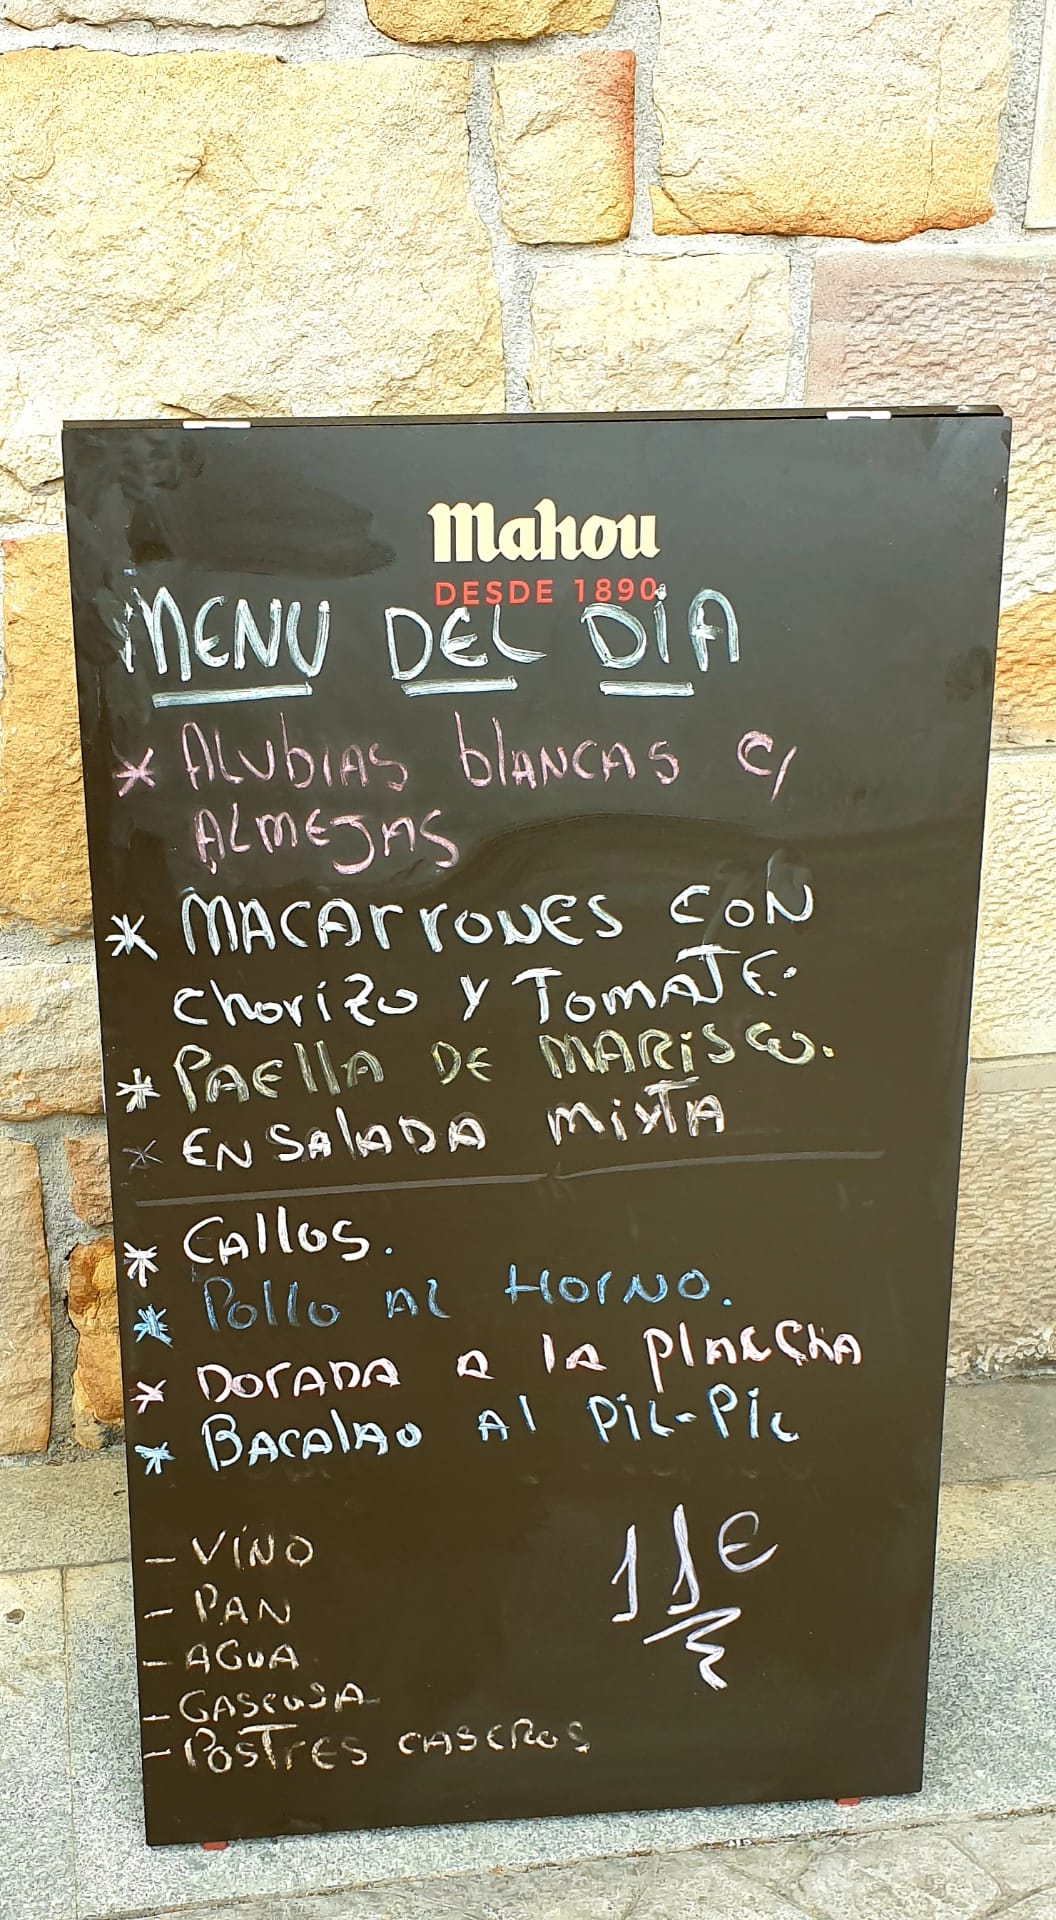 Mahou
DESDE 1890
MENU DEL DÍA
* Alubias blancas c/
Almejas
* Macarrones con
chorizo y Tomate.
* Paella de Marisco.
* Ensalada mixta
* Callos.
* Pollo al Horno.
* Dorada a la plancha
* Bacalao al Pil-Pil
- Vino
- Pan
- Agua
11€
- Gaseosa
- Postres caseros